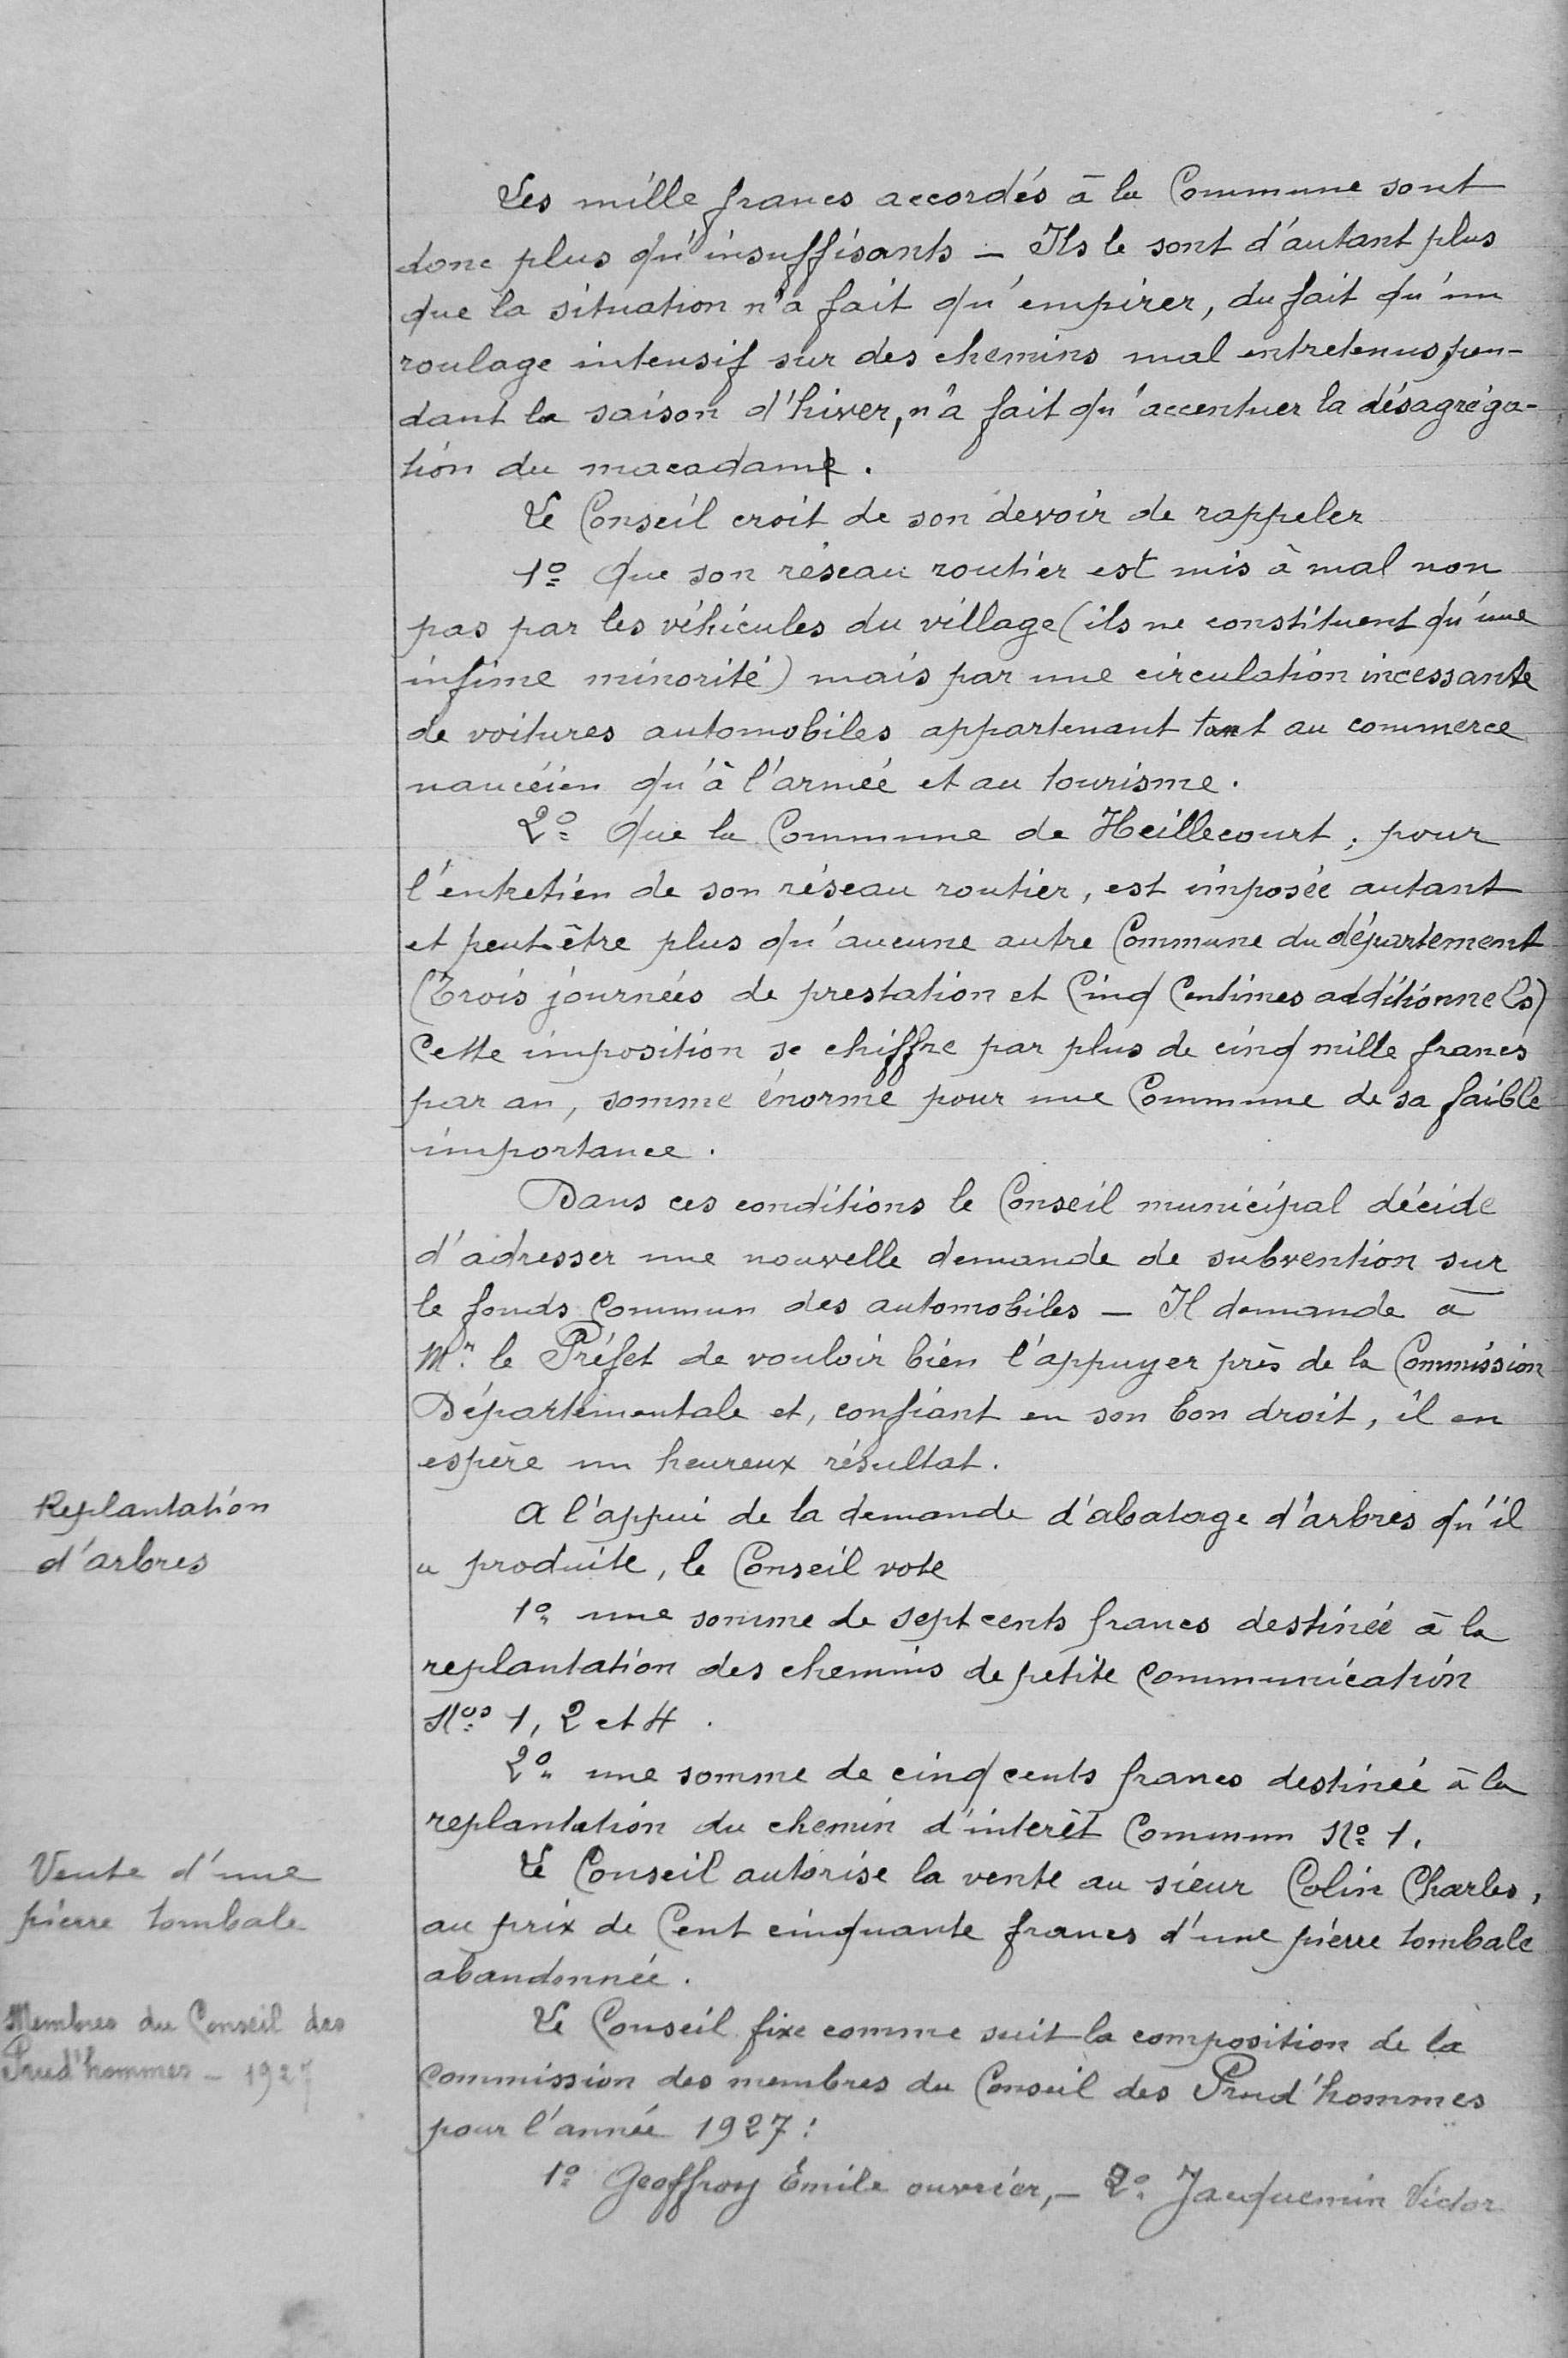 Les mille francs accordés à la Commune sont
donc plus qu'insuffisants — Ils le sont d'autant plus
que la situation n'a fait qu'empirer, du fait qu'un
roulage intensif sur des chemins mal entretenus, pen-
dant la saison d'hiver, n'a fait qu'accentuer la désagréga-
tion du macadam.
Le Conseil croit de son devoir de rappeler
1º Que son réseau routier est mis à mal non
pas par les véhicules du village (ils ne constituent qu'une
infime minorité) mais par une circulation incessante
de voitures automobiles appartenant tant au commerce
nancéien qu'à l'armée et au tourisme.
2º Que la Commune de Heillecourt, pour
l'entretien de son réseau routier, est imposée autant
et peut-être plus qu'aucune autre Commune du département
(Trois journées de prestation et Cinq Centimes additionnels)
Cette imposition se chiffre par plus de cinq mille francs
par an, somme énorme pour une Commune de sa faible
importance.
Dans ces conditions le Conseil municipal décide
d'adresser une nouvelle demande de subvention sur
le fonds Commun des automobiles — Il demande à
Mr. le Préfet de vouloir bien l'appuyer près de la Commission
Départementale et, confiant en son bon droit, il en
espère un heureux résultat.
Replantation
d'arbres
A l'appui de la demande d'abatage d'arbres qu'il
a produite, le Conseil vote
1º une somme de sept cents francs destinée à la
replantation des chemins de petite Communication
Nos 1, 2 et 4.
2º une somme de cinq cents francs destinée à la
replantation du chemin d'intérêt Commun Nº 1.
Vente d'une
pierre tombale
Le Conseil autorise la vente au sieur Colin Charles,
au prix de Cent cinquante francs d'une pierre tombale
abandonnée.
Membres du Conseil des
Prud'hommes – 1927
Le Conseil fixe comme suit la composition de la
Commission des membres du Conseil des Prud'hommes
pour l'année 1927 :
1º Geoffroy Émile ouvrier, — 2º Jacquemin Victor